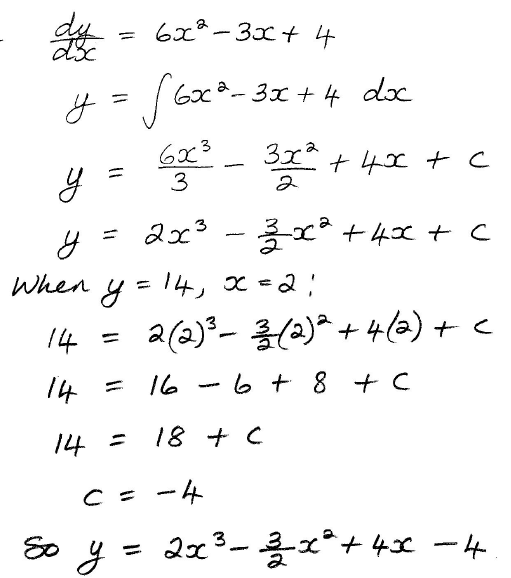 dy/dx = 6x² - 3x + 4
y = ∫ 6x² - 3x + 4 dx
y = 6x³/3 - 3x²/2 + 4x + c
y = 2x³ - 3/2 x² + 4x + c
When y = 14, x = 2:
14 = 2(2)³ - 3/2 (2)² + 4(2) + c
14 = 16 - 6 + 8 + c
14 = 18 + c
c = -4
So y = 2x³ - 3/2 x² + 4x - 4